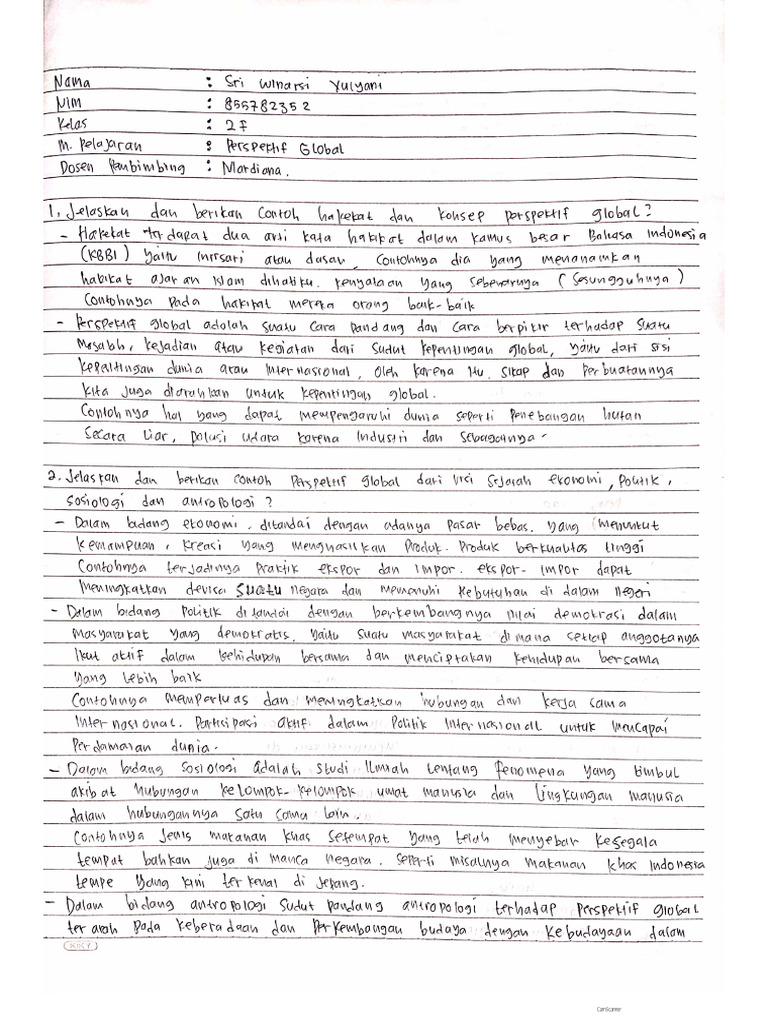 Nama : Sri Winarsi Yulyani
NIM : 855782352
Kelas : 2F
M. Pelajaran : Perspektif Global
Dosen Pembimbing : Mardiana.
1. Jelaskan dan berikan contoh hakekat dan konsep perspektif global?
- Hakekat terdapat dua arti kata hakikat dalam kamus besar Bahasa Indonesia
(KBBI) yaitu intisari atau dasar, Contohnya dia yang menanamkan
hakikat ajaran islam dihatiku. kenyataan yang sebenarnya (Sesungguhnya)
Contohnya pada hakikat mereka orang baik-baik
- Perspektif global adalah suatu cara pandang dan cara berpikir terhadap suatu
Masalah, kejadian atau kegiatan dari sudut kepentingan global, yaitu dari sisi
kepentingan dunia atau Internasional, oleh karena itu, sikap dan perbuatannya
kita juga diarahkan untuk kepentingan global.
Contohnya hal yang dapat mempengaruhi dunia seperti penebangan hutan
Secara liar, polusi udara karena Industri dan sebagainya.
2. Jelaskan dan berikan contoh perspektif global dari visi sejarah ekonomi, politik,
sosiologi dan antropologi?
- Dalam bidang ekonomi, ditandai dengan adanya pasar bebas. yang menuntut
kemampuan, kreasi yang menghasilkan produk-produk berkualitas tinggi
Contohnya terjadinya praktik ekspor dan impor. ekspor-impor dapat
Meningkatkan devisa suatu negara dan memenuhi kebutuhan di dalam negeri
- Dalam bidang Politik ditandai dengan berkembangnya nilai demokrasi dalam
masyarakat yang demokratis, yaitu suatu masyarakat dimana setiap anggotanya
Ikut aktif dalam kehidupan bersama dan menciptakan kehidupan bersama
yang lebih baik
Contohnya memperluas dan meningkatkan hubungan dan kerja sama
Internasional. Partisipasi aktif dalam Politik Internasionall untuk mencapai
Perdamaian dunia.
- Dalam bidang sosiologi adalah studi ilmiah tentang fenomena yang timbul
akibat hubungan kelompok-kelompok umat manusia dan lingkungan manusia
dalam hubungannya satu sama lain.
Contohnya jenis makanan khas setempat yang telah menyebar kesegala
tempat bahkan juga di manca negara. seperti misalnya makanan khas Indonesia
tempe yang kini terkenal di jepang.
- Dalam bidang antropologi sudut pandang antropologi terhadap perspektif global
terarah pada keberadaan dan perkembangan budaya dengan kebudayaan dalam
KIKY
CamScanner